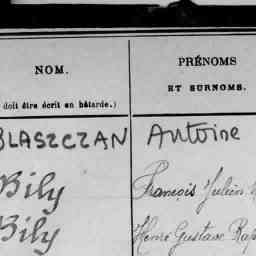 NOM.
PRÉNOMS
ET SURNOMS.
doit être écrit en bâtarde.)
BLASZCZAN Antoine
Bily François Julien
Bily Henri Gustave